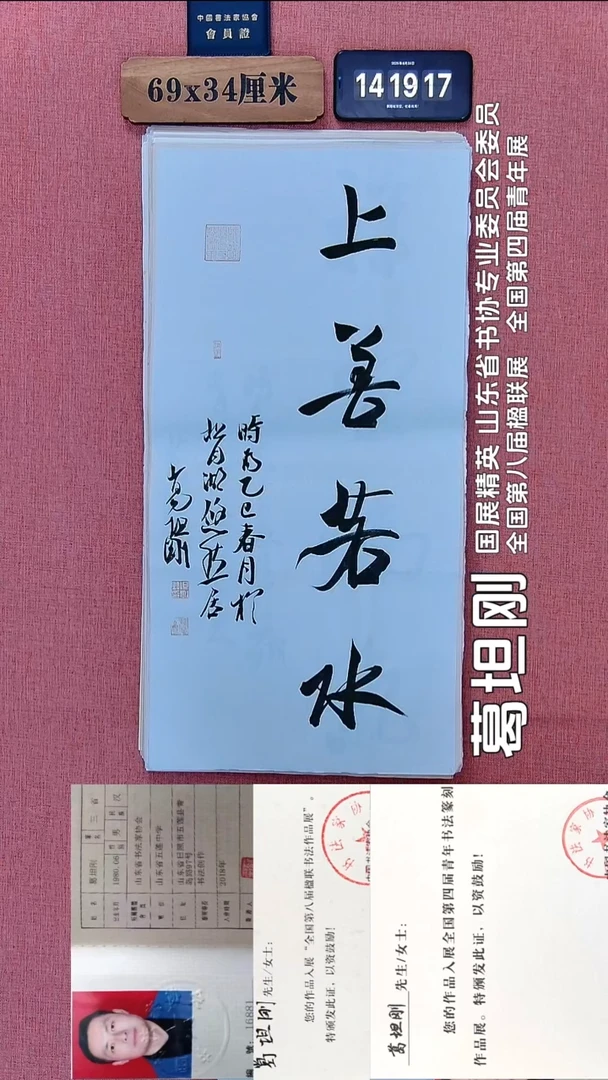 中國書法家協會
會員證
69x34厘米
14 19 17
上善若水
時為乙巳春月於
松月湖悠然居
葛坦刚
葛坦刚
国展精英 山东省书协专业委员会委员
全国第八届楹联展 全国第四届青年展
葛坦刚
1980.06
山东省书法家协会
山东省五莲中学
书法创作
2018年
葛坦刚 先生/女士:
您的作品入展“全国第八届楹联书法作品展”。
特颁发此证,以资鼓励!
葛坦刚 先生/女士:
您的作品入展全国第四届青年书法篆刻
作品展。特颁发此证,以资鼓励!